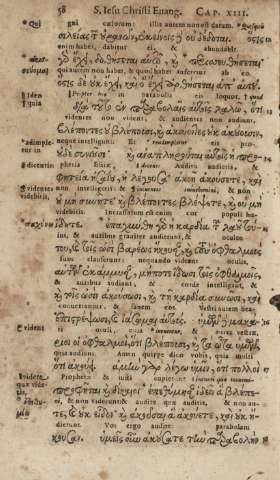 58 S. Iesu Christi Euang. CAP. XIII.
Qui gni cælorum: illis autem non est datum.
σιλείας τῶν οὐρανῶν, ἐκείνοις δὲ οὐ δέδοται. ὅστις
enim habet, dabitur ei, & abundabit.
γὰρ ἔχει, δοθήσεται αὐτῷ, καὶ περισσευθήσεται
qui autem non habet, & quod habet auferetur ab eo
ὅστις δὲ οὐκ ἔχει, καὶ ὃ ἔχει ἀρθήσεται ἀπ' αὐτοῦ.
Ideo in parabolis loquor, quod
διὰ τοῦτο ἐν παραβολαῖς αὐτοῖς λαλῶ, ὅτι
videntes non vident, & audientes non audiunt,
βλέποντες οὐ βλέπουσι, καὶ ἀκούοντες οὐκ ἀκούουσιν,
neque intelligunt. Et
οὐδὲ συνιοῦσι. καὶ ἀναπληροῦται αὐτοῖς ἡ προ-
phetia Esaiæ, Auditu audietis, &
φητεία ἡ λέγουσα· ἀκοῇ ἀκούσετε, καὶ οὐ
non intelligetis: & videbitis, & non
μὴ συνῆτε· καὶ βλέποντες βλέψετε, καὶ οὐ μὴ
videbitis. cor populi
ἴδητε. ἐπαχύνθη γὰρ ἡ καρδία τοῦ λαοῦ τού-
ius, & auribus grauiter audierunt, & oculos
του, καὶ τοῖς ὠσὶ βαρέως ἤκουσαν, καὶ τοὺς ὀφθαλμοὺς
suos clauserunt: nequando videant oculis,
αὐτῶν ἐκάμμυσαν, μήποτε ἴδωσι τοῖς ὀφθαλμοῖς,
& auribus audiant, & corde intelligant, &
καὶ τοῖς ὠσὶν ἀκούσωσι, καὶ τῇ καρδίᾳ συνῶσι, καὶ
Vestri autem beati
ἐπιστρέψωσι, καὶ ἰάσωμαι αὐτούς. ὑμῶν δὲ μακά-
vident oculi, quia & aures vestræ,
ριοι οἱ ὀφθαλμοὶ, ὅτι βλέπουσι, καὶ τὰ ὦτα ὑμῶν,
quia audiunt. Amen quippe dico vobis, quia multi
ὅτι ἀκούει. ἀμὴν γὰρ λέγω ὑμῖν, ὅτι πολλοὶ
Prophetæ & iusti cupierunt
προφῆται καὶ δίκαιοι ἐπεθύμησαν ἰδεῖν ἃ βλέπε-
& non viderunt: & audire quæ auditis, & non au-
τε, καὶ οὐκ εἶδον· καὶ ἀκοῦσαι ἃ ἀκούετε, καὶ οὐκ ἤ-
dierunt. Vos ergo audite parabolam
κουσαν. ὑμεῖς οὖν ἀκούσατε τὴν παραβολὴν